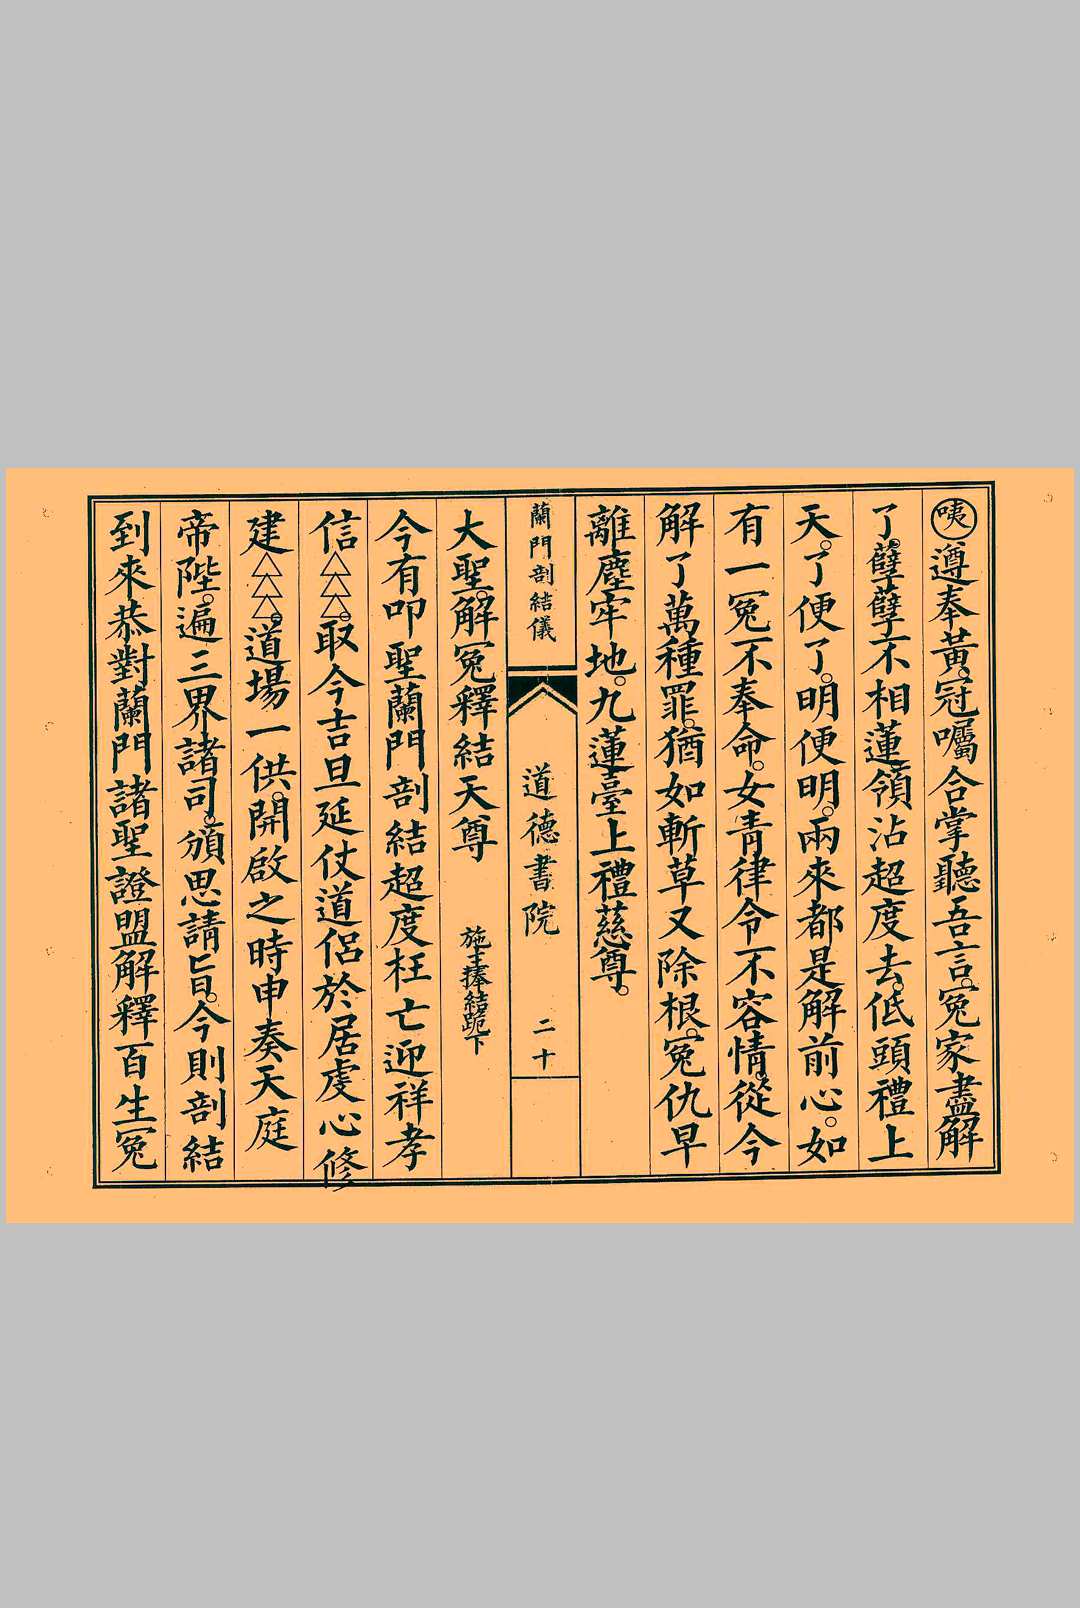 咦遵奉黃。冠囑合掌聽吾言。冤家盡解
了。孽孽不相蓮。領沾超度去。低頭禮上
天。了便了。明便明。兩來都是解前心。如
有一冤不奉命。女青律令不容情。從今
解了萬種罪。猶如斬草又除根。冤仇早
離塵牢地。九蓮臺上禮慈尊。
蘭門剖結儀
道德書院
二十
大聖。解冤釋結天尊
施主捧結跪下
今有叩聖蘭門剖結超度枉亡迎祥孝
信△△△。取今吉旦延仗道侶於居虔心修
建△△△。道場一供。開啟之時申奏天庭
帝陛。遍三界諸司。頒思請旨。今則剖結
到來恭對蘭門諸聖證盟解釋百生冤